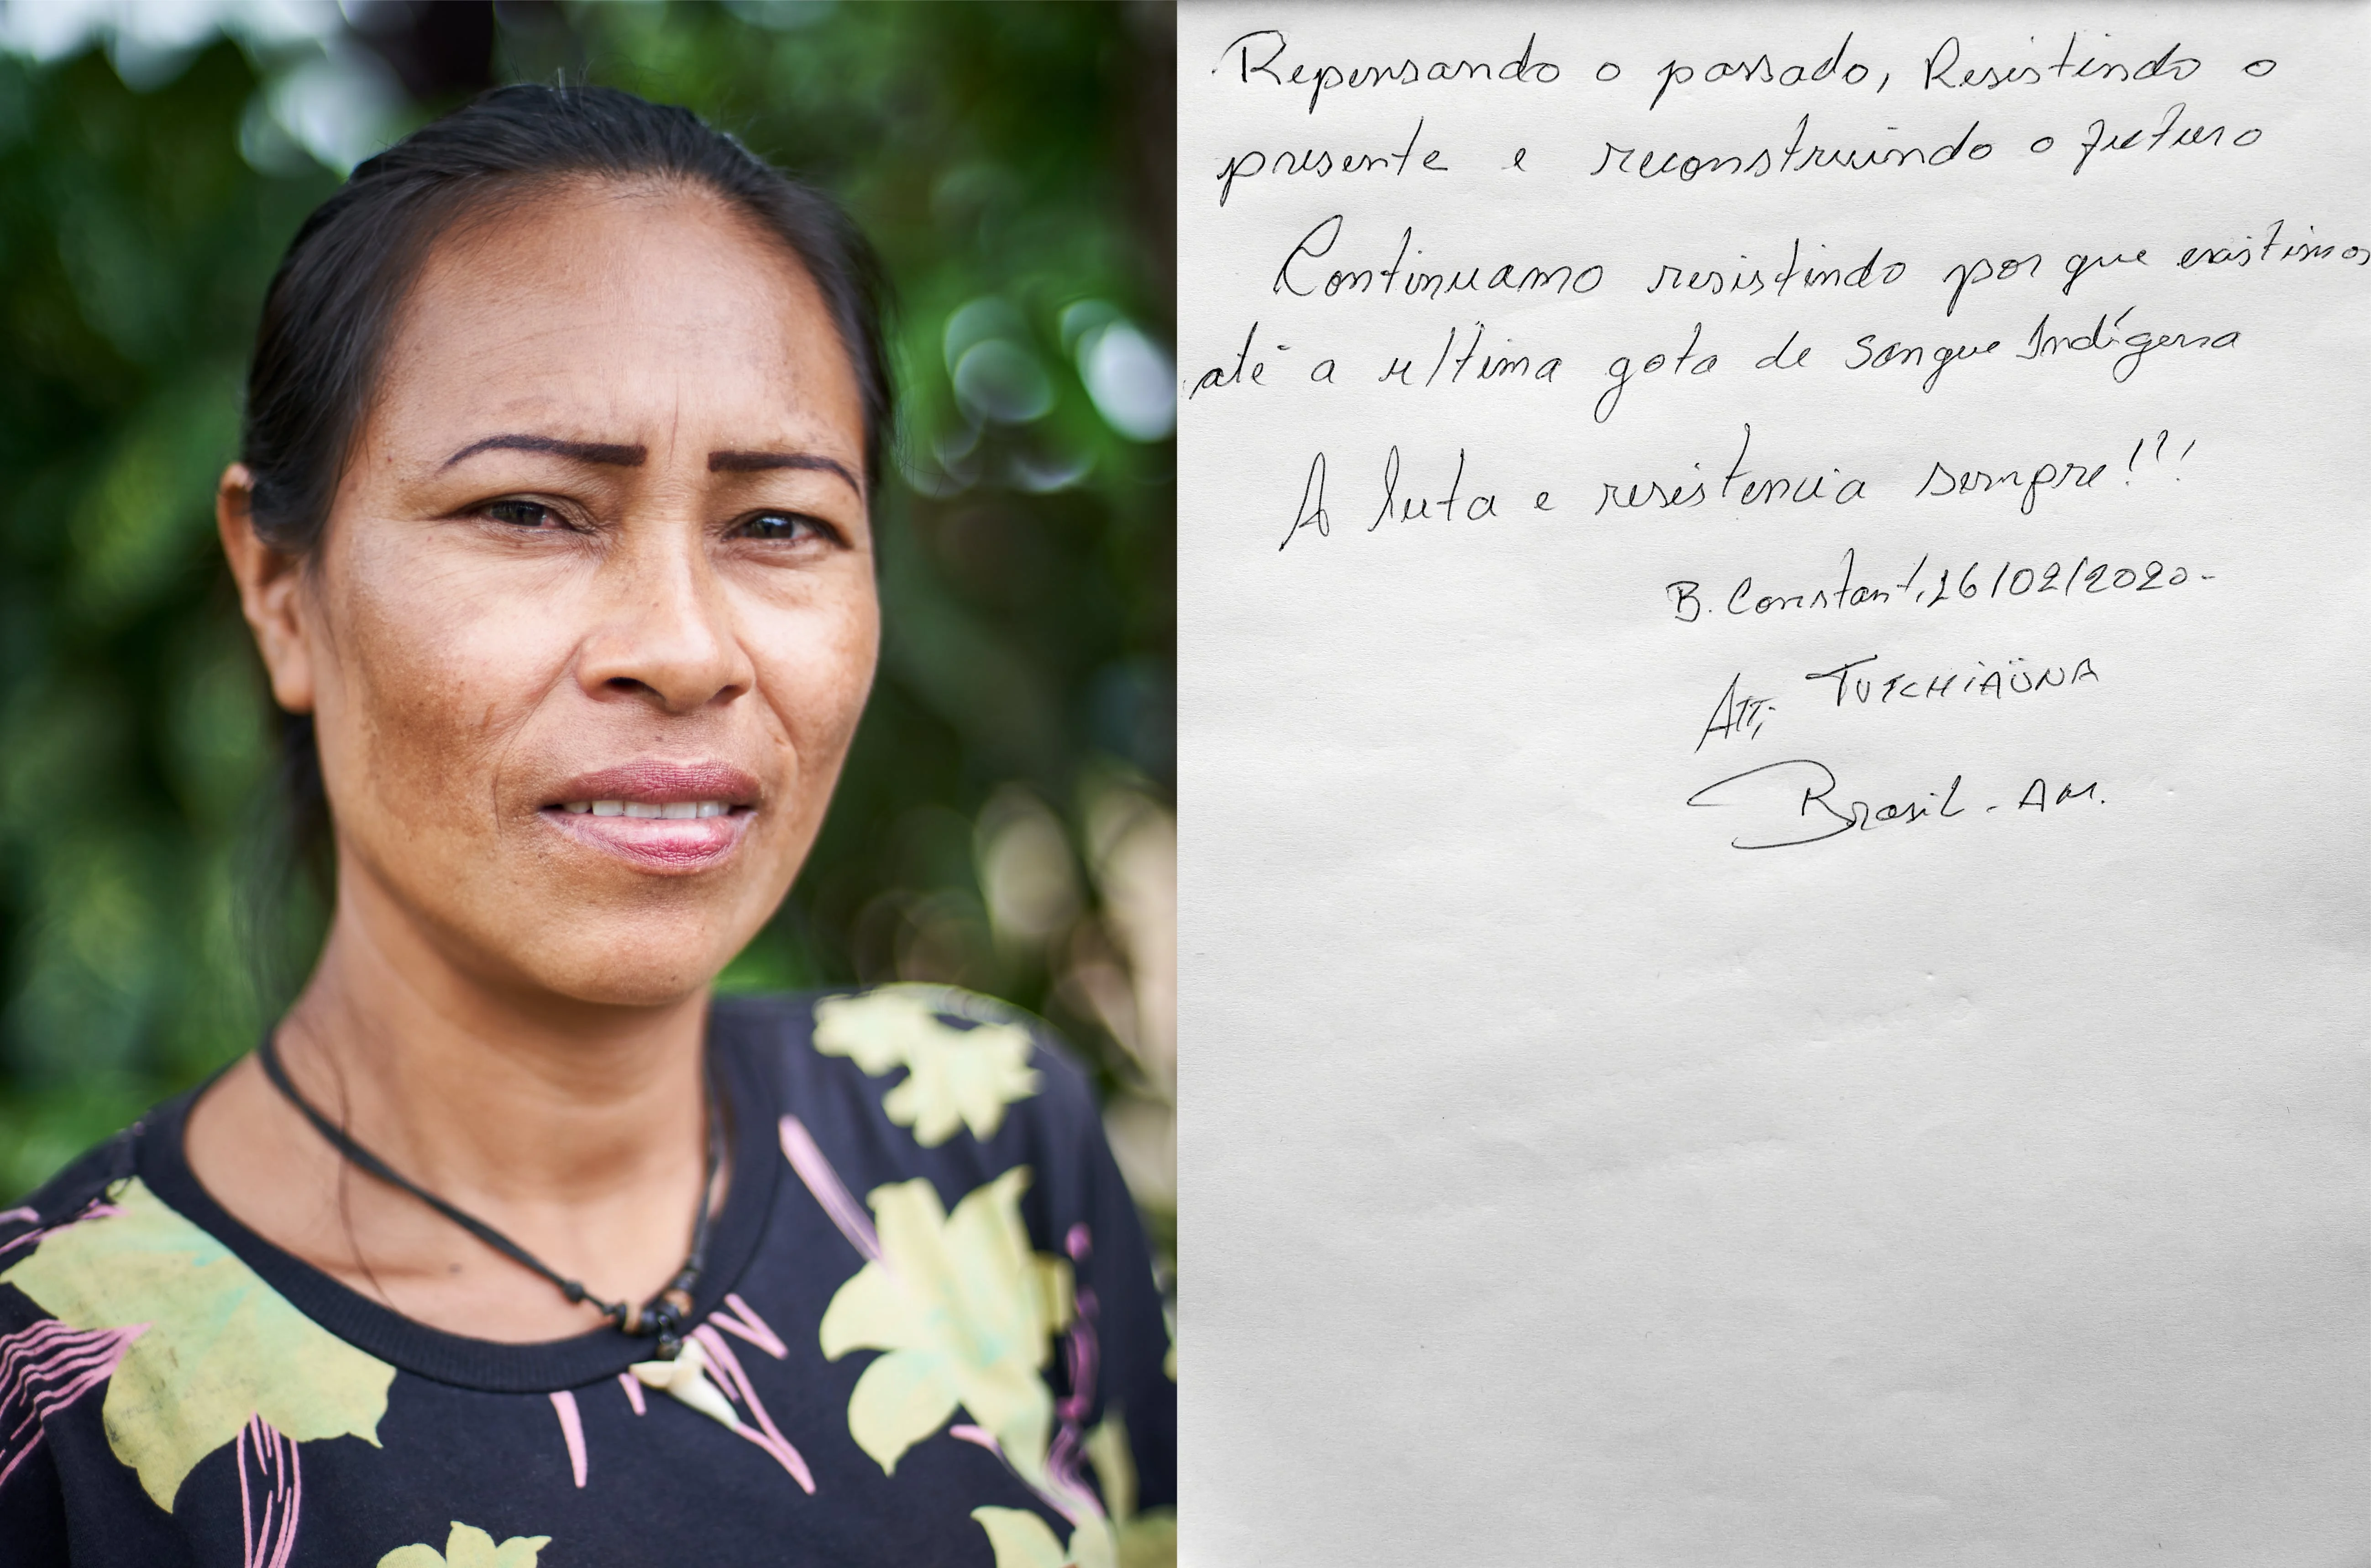 Repensando o passado, Resistindo o
presente e reconstruindo o futuro
Continuamo resistindo por que existimos
até a ultima gota de sangue Indígena
A luta e resistencia sempre!!!
B. Constant, 26/02/2020-
Att; TUTCHiAÜNA
Brasil - AM.